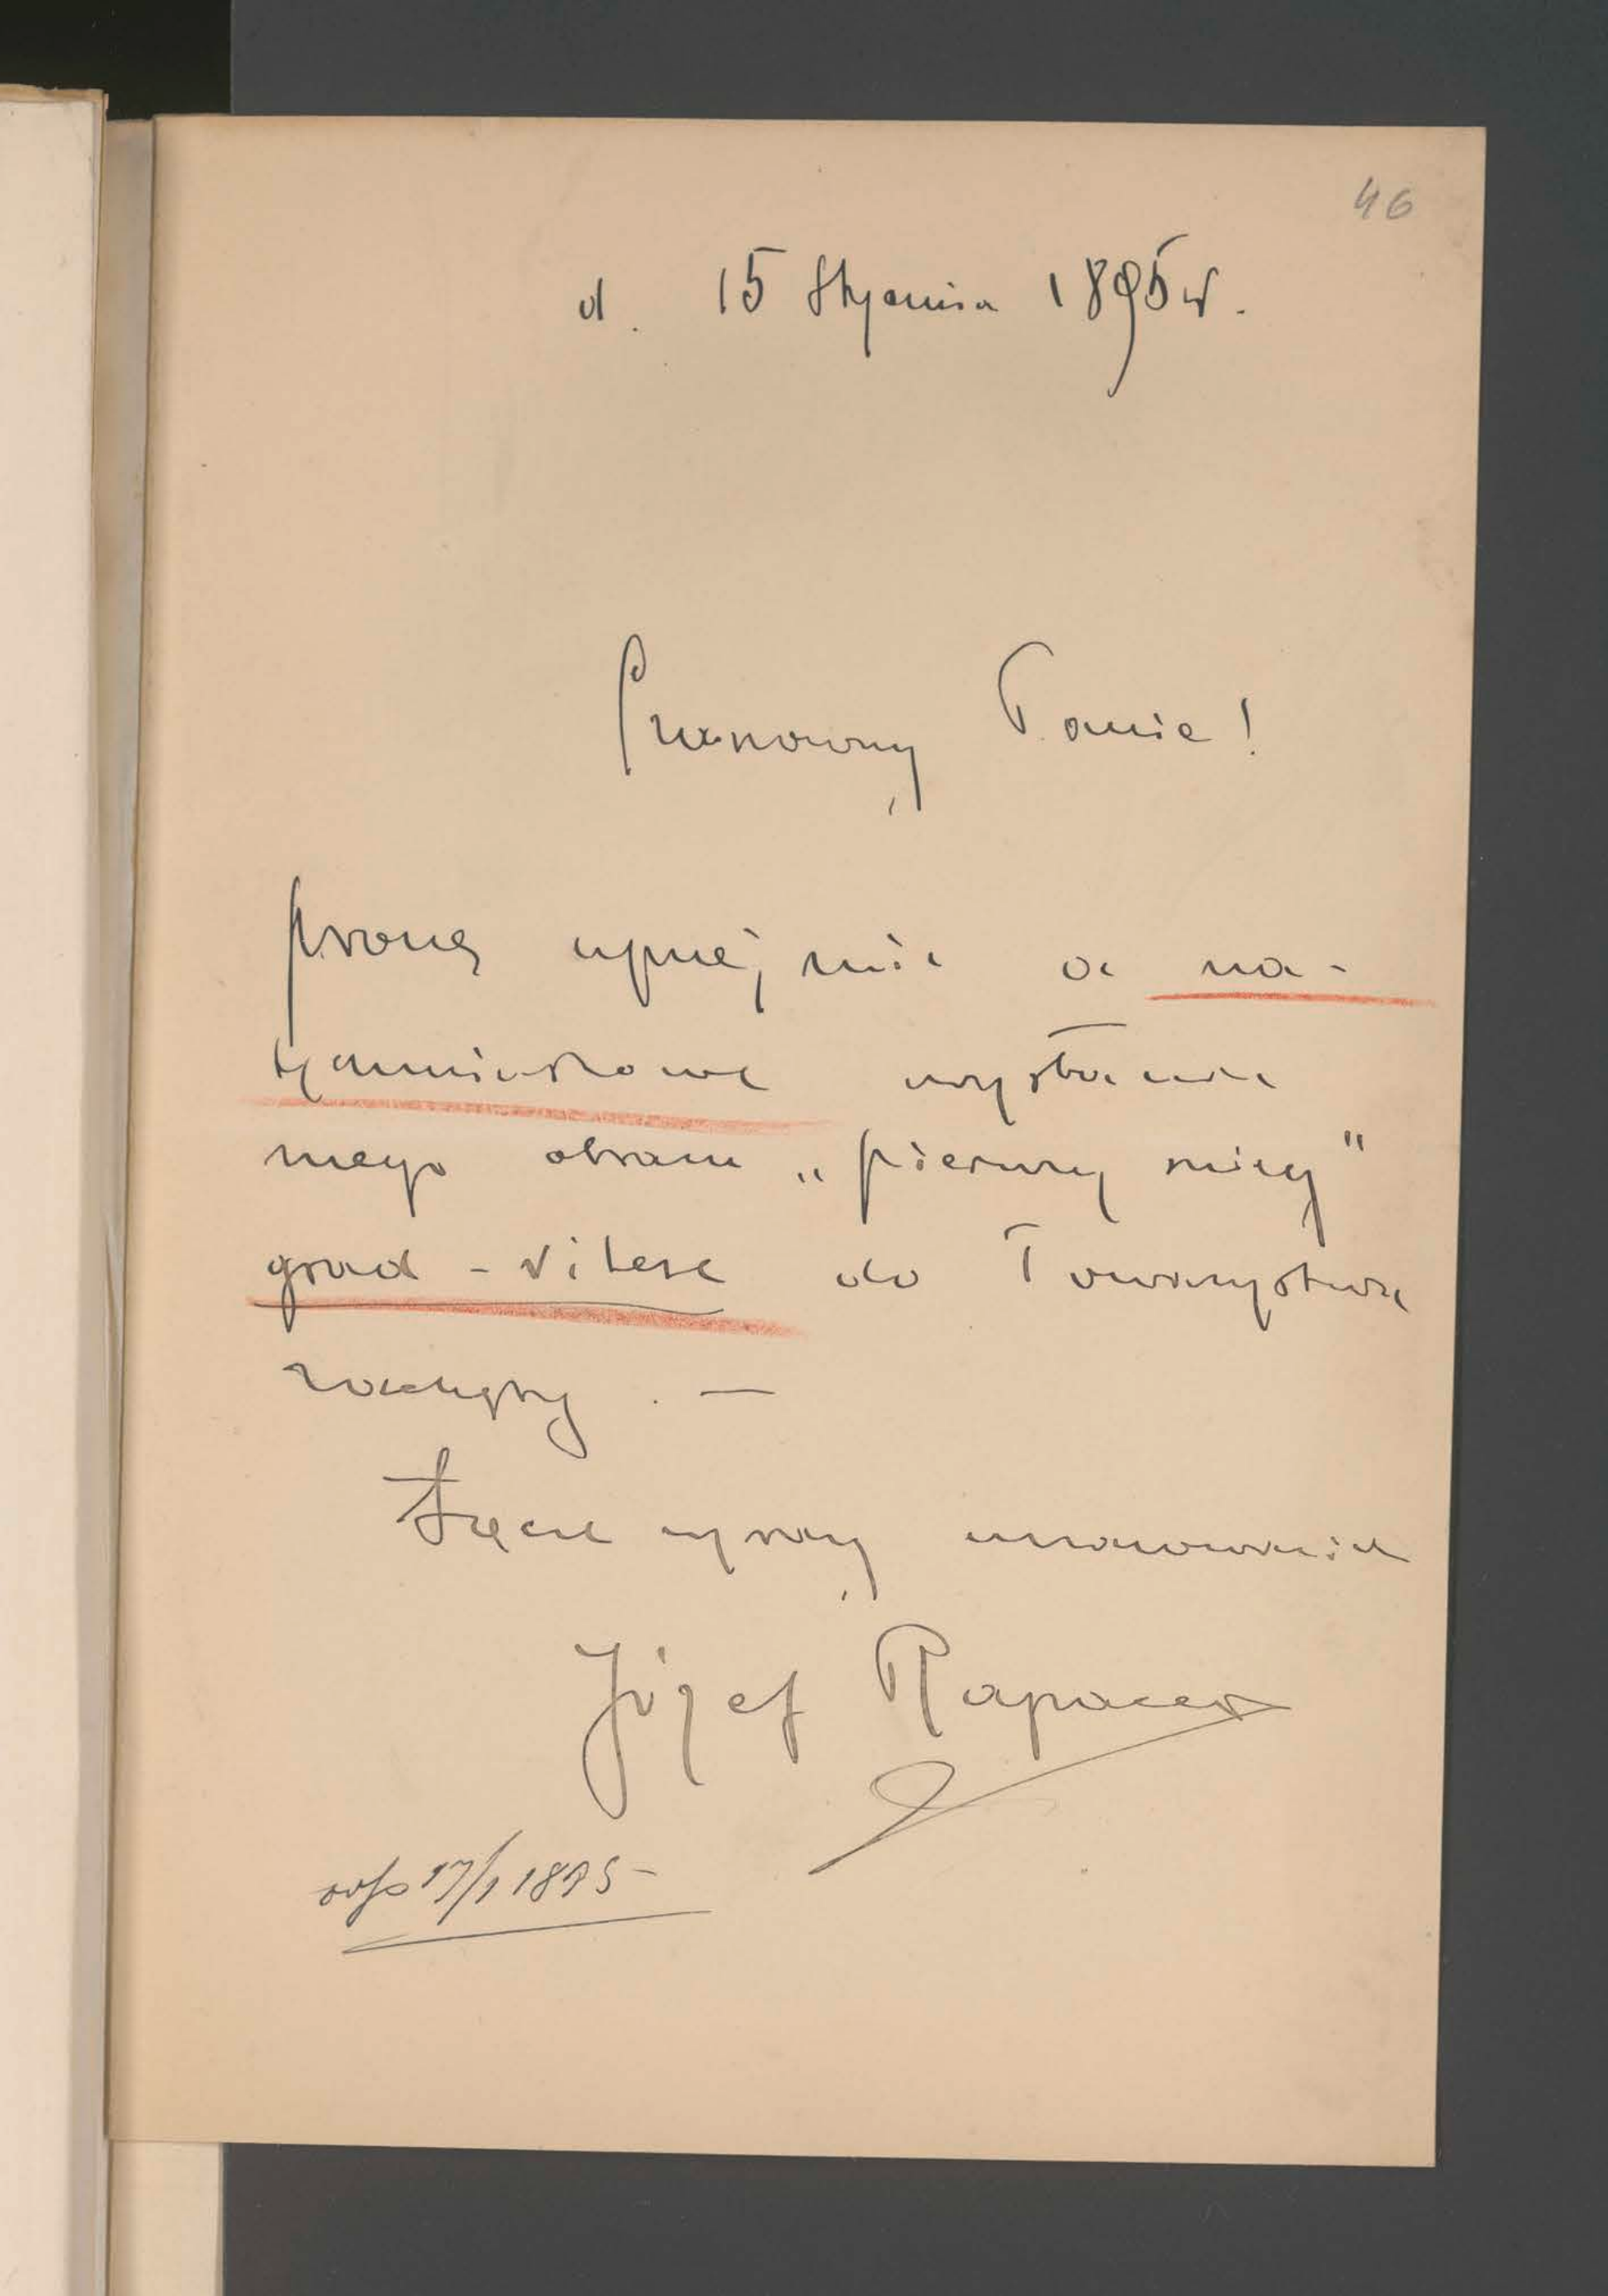 46
d. 15 Stycznia 1895 r.
Szanowny Panie!
proszę uprzejmie o na-
tychmiastowe wysłanie
mego obrazu „pierwszy śnieg"
grad - vitese do Towarzystwa
zachęty. —
Łączę wyrazy uszanowania
Józef Rapacki
odp 17/1 1895